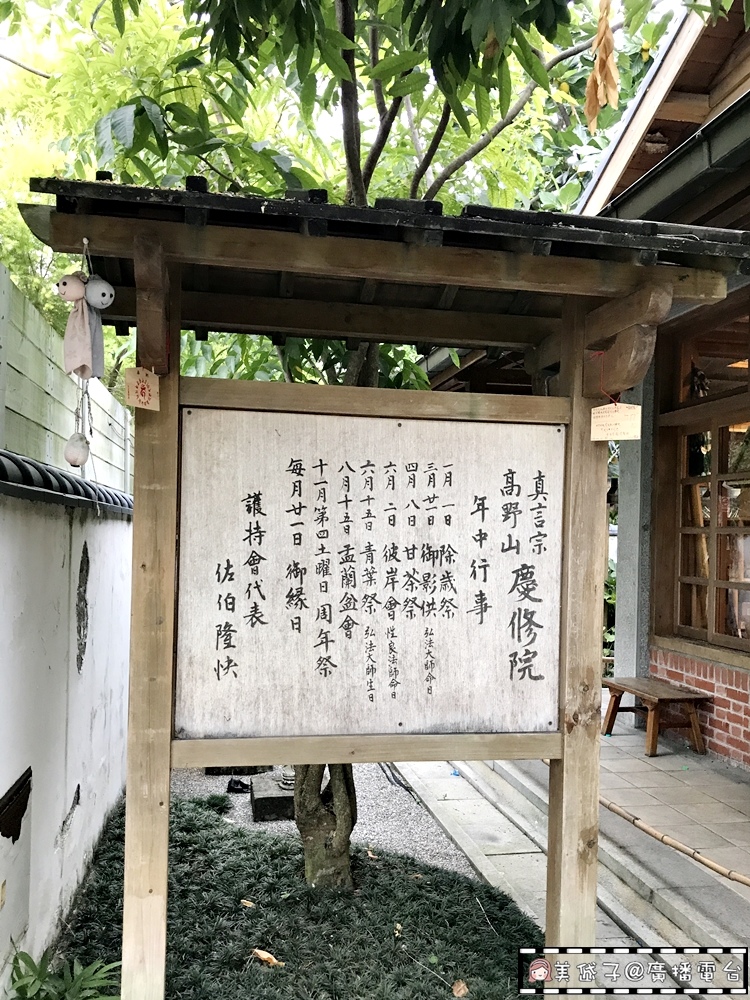 真言宗
高野山 慶修院
年中行事
一月一日 除歳祭
三月廿一日 御影供 弘法大師命日
四月八日 甘茶祭
六月二日 彼岸會 性泉法師命日
六月十五日 青葉祭 弘法大師生日
八月十五日 盂蘭盆會
十一月第四土曜日 周年祭
毎月廿一日 御縁日
護持會代表
佐伯隆快
美岱子@廣播電台